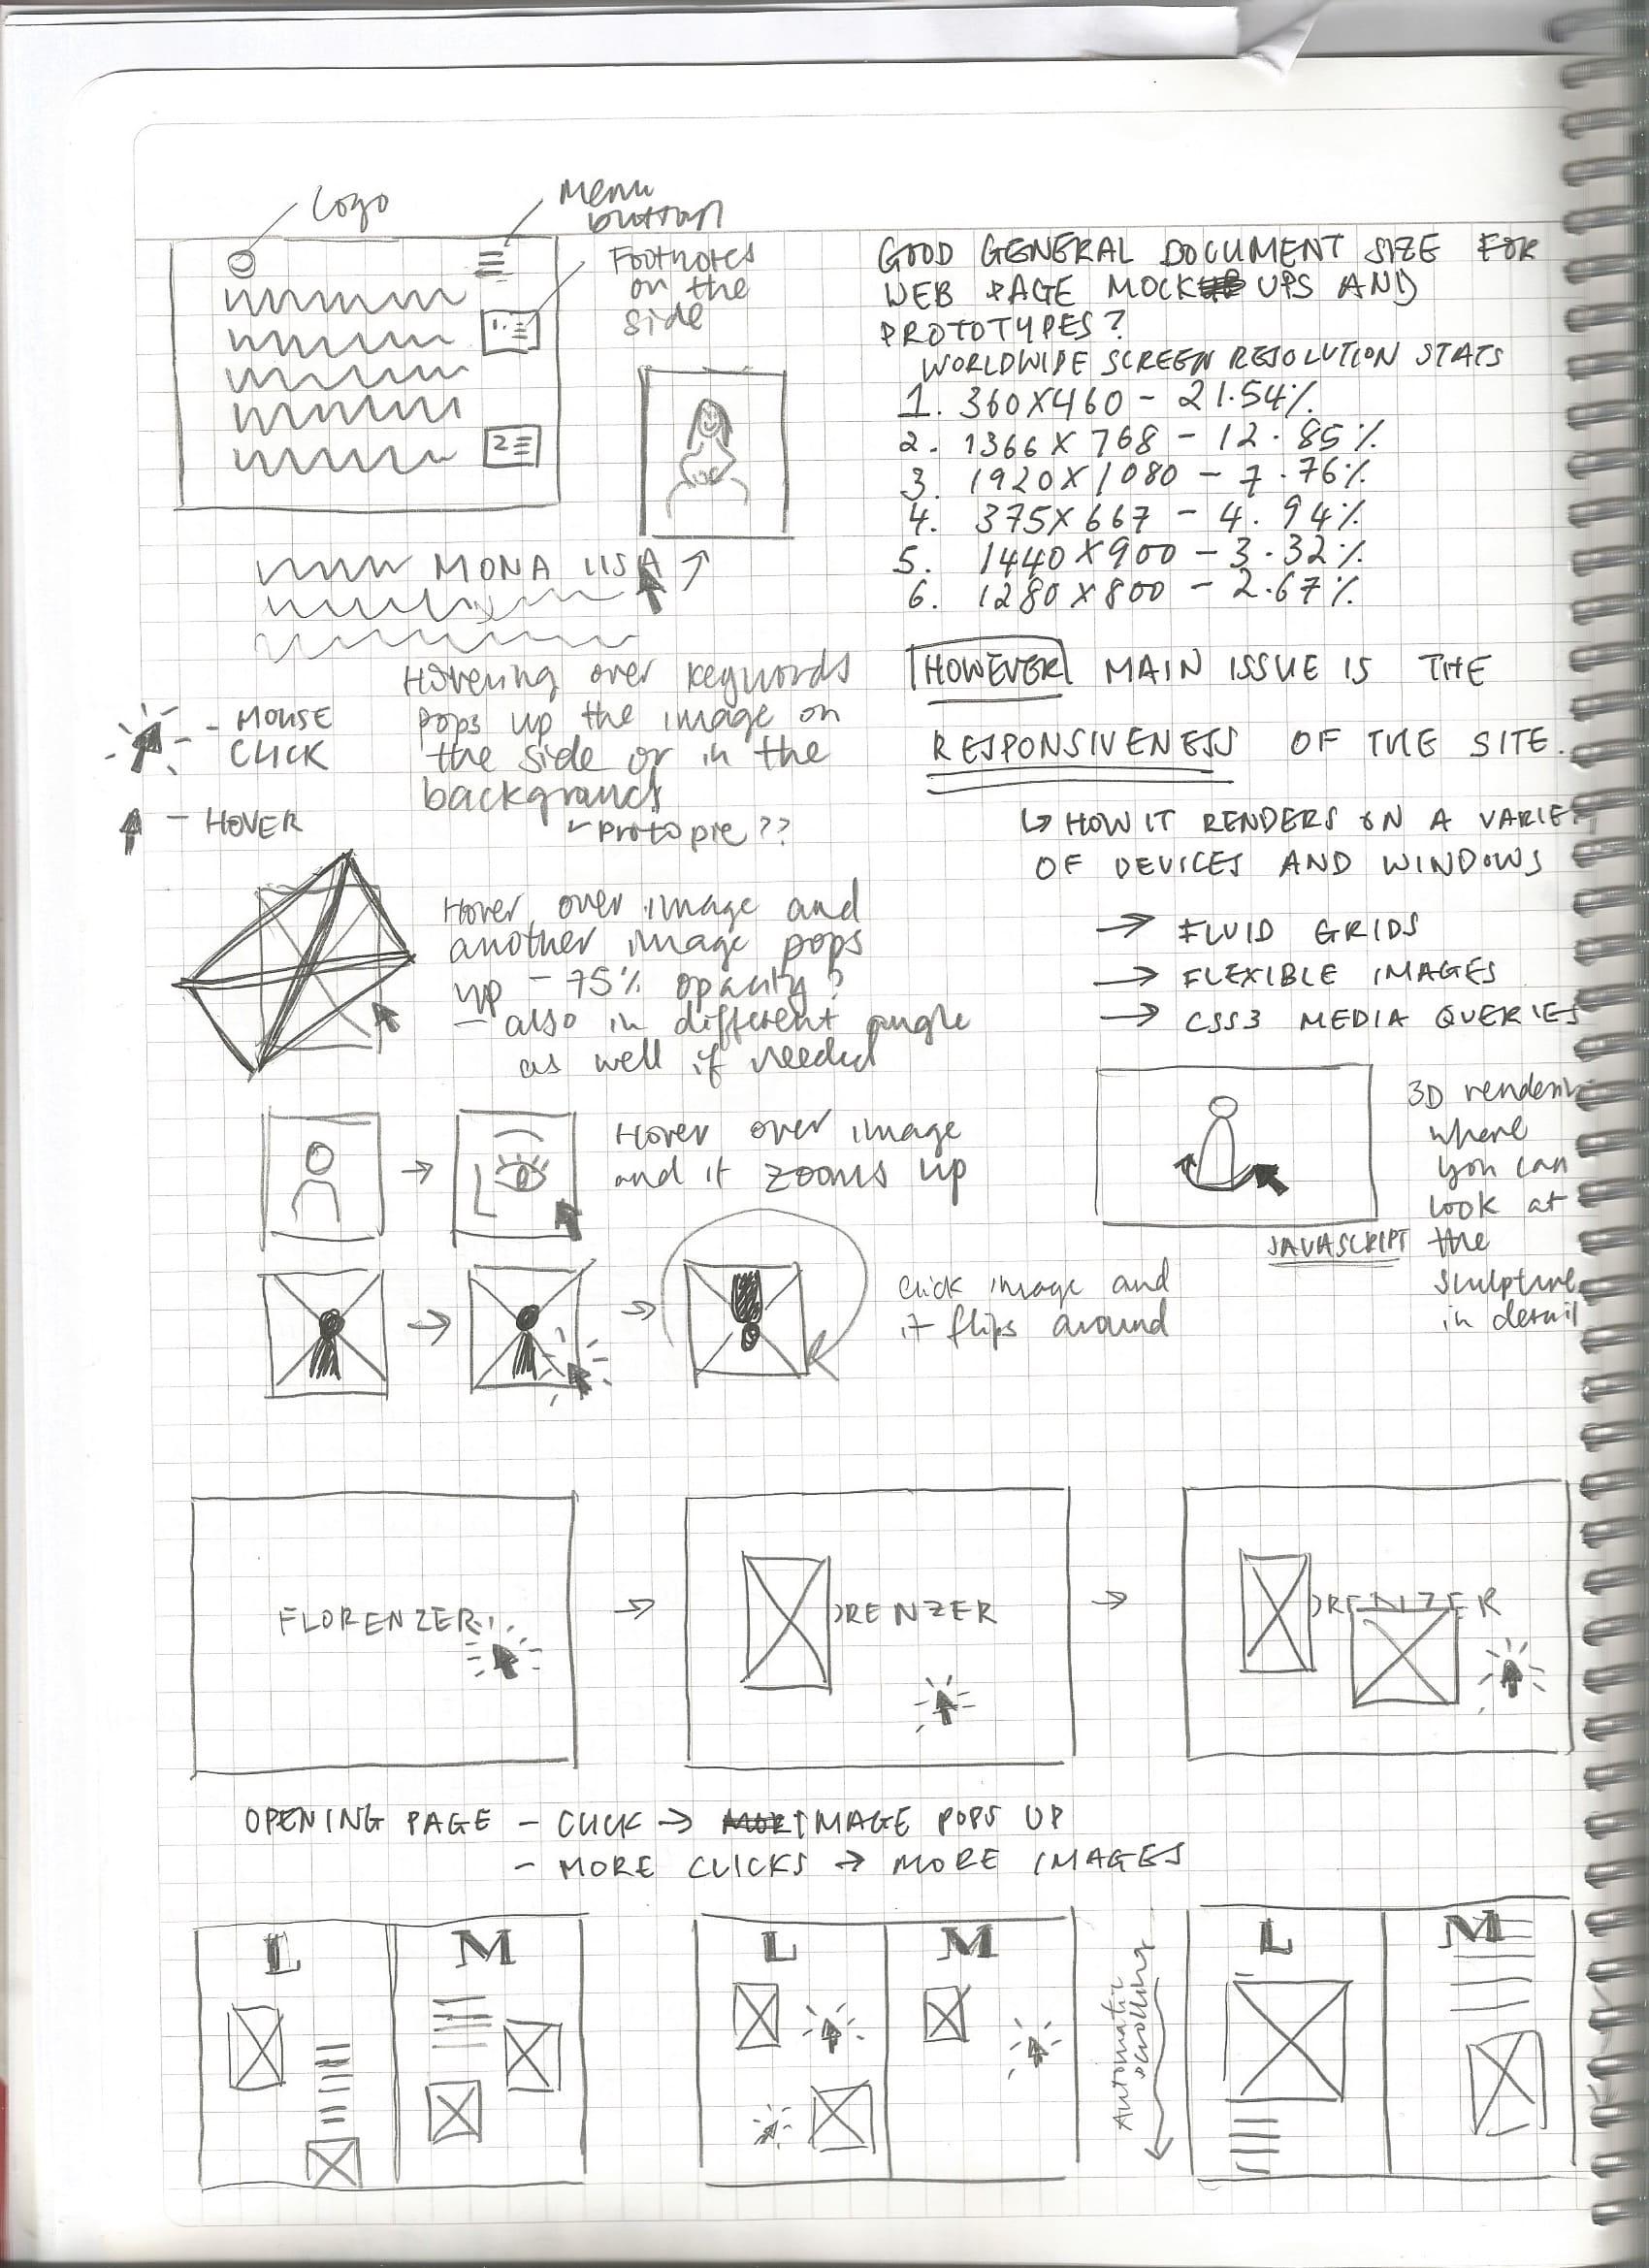 Logo
Menu
button
Footnotes
on the
side
1.
2
MONA LISA
Hovering over keywords
pops up the image on
the side or in the
background
- protopie??
- MOUSE
CLICK
- HOVER
GOOD GENERAL DOCUMENT SIZE FOR
WEB PAGE MOCK UPS AND
PROTOTYPES?
WORLDWIDE SCREEN RESOLUTION STATS
1. 360X460 - 21.54%
2. 1366 X 768 - 12.85%
3. 1920X1080 - 7.76%
4. 375X667 - 4.94%
5. 1440X900 - 3.32%
6. 1280X800 - 2.67%
HOWEVER MAIN ISSUE IS THE
RESPONSIVENESS OF THE SITE.
↳ HOW IT RENDERS ON A VARIE
OF DEVICES AND WINDOWS
→ FLUID GRIDS
→ FLEXIBLE IMAGES
→ CSS3 MEDIA QUERIES
Hover over image and
another image pops
up - 75% opacity?
- also in different angle
as well if needed
Hover over image
and it zooms up
3D renderin
where
you can
look at
the
sculpture
in detail
JAVASCRIPT
Click image and
it flips around
FLORENZER
ORENZER
ORENZER
OPENING PAGE - CLICK → IMAGE POPS UP
- MORE CLICKS → MORE IMAGES
L M
L M
Automatic
scrolling
L M